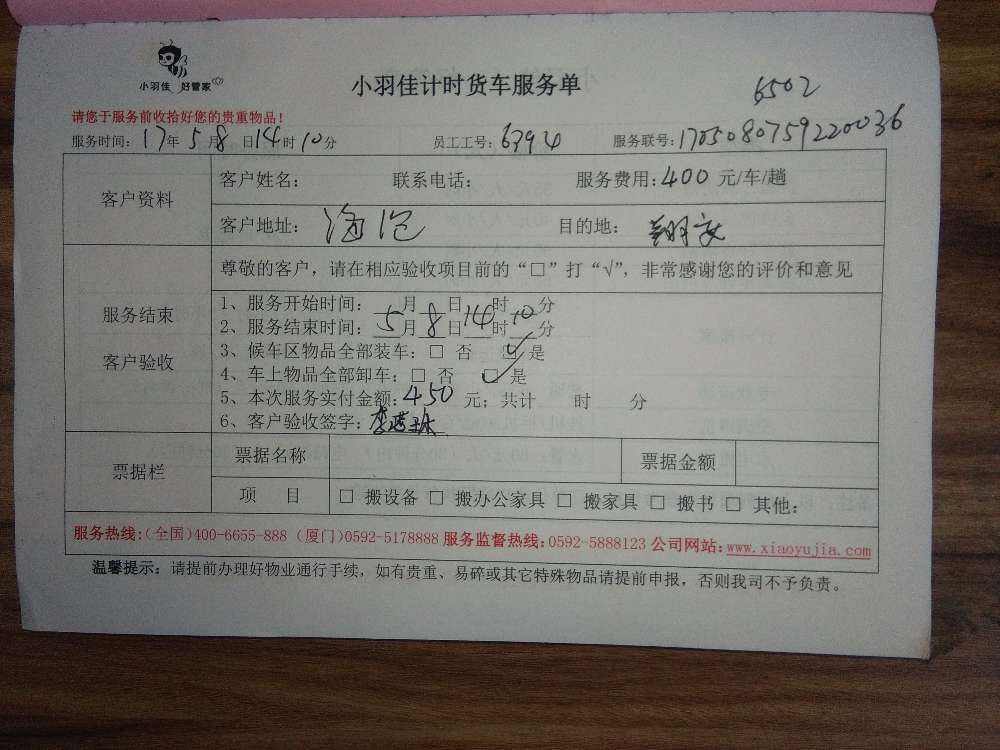 小羽佳 好管家
小羽佳计时货车服务单
6502
请您于服务前收拾好您的贵重物品！
服务时间：17年5月8日14时10分 员工工号：6394 服务联号：1705080759220036
客户资料
客户姓名： 联系电话： 服务费用：400 元/车/趟
客户地址： 海沧 目的地： 翔安
服务结束
客户验收
尊敬的客户，请在相应验收项目前的“□”打“√”，非常感谢您的评价和意见
1、服务开始时间： 月 日 时 分
2、服务结束时间：5月8日14时10分
3、候车区物品全部装车：□ 否 ☑ 是
4、车上物品全部卸车：□ 否 ☑ 是
5、本次服务实付金额：450 元；共计 时 分
6、客户验收签字：
票据栏
票据名称 票据金额
项 目 □ 搬设备 □ 搬办公家具 □ 搬家具 □ 搬书 □ 其他：
服务热线：（全国）400-6655-888（厦门）0592-5178888 服务监督热线：0592-5888123 公司网站：www.xiaoyujia.com
温馨提示：请提前办理好物业通行手续，如有贵重、易碎或其它特殊物品请提前申报，否则我司不予负责。